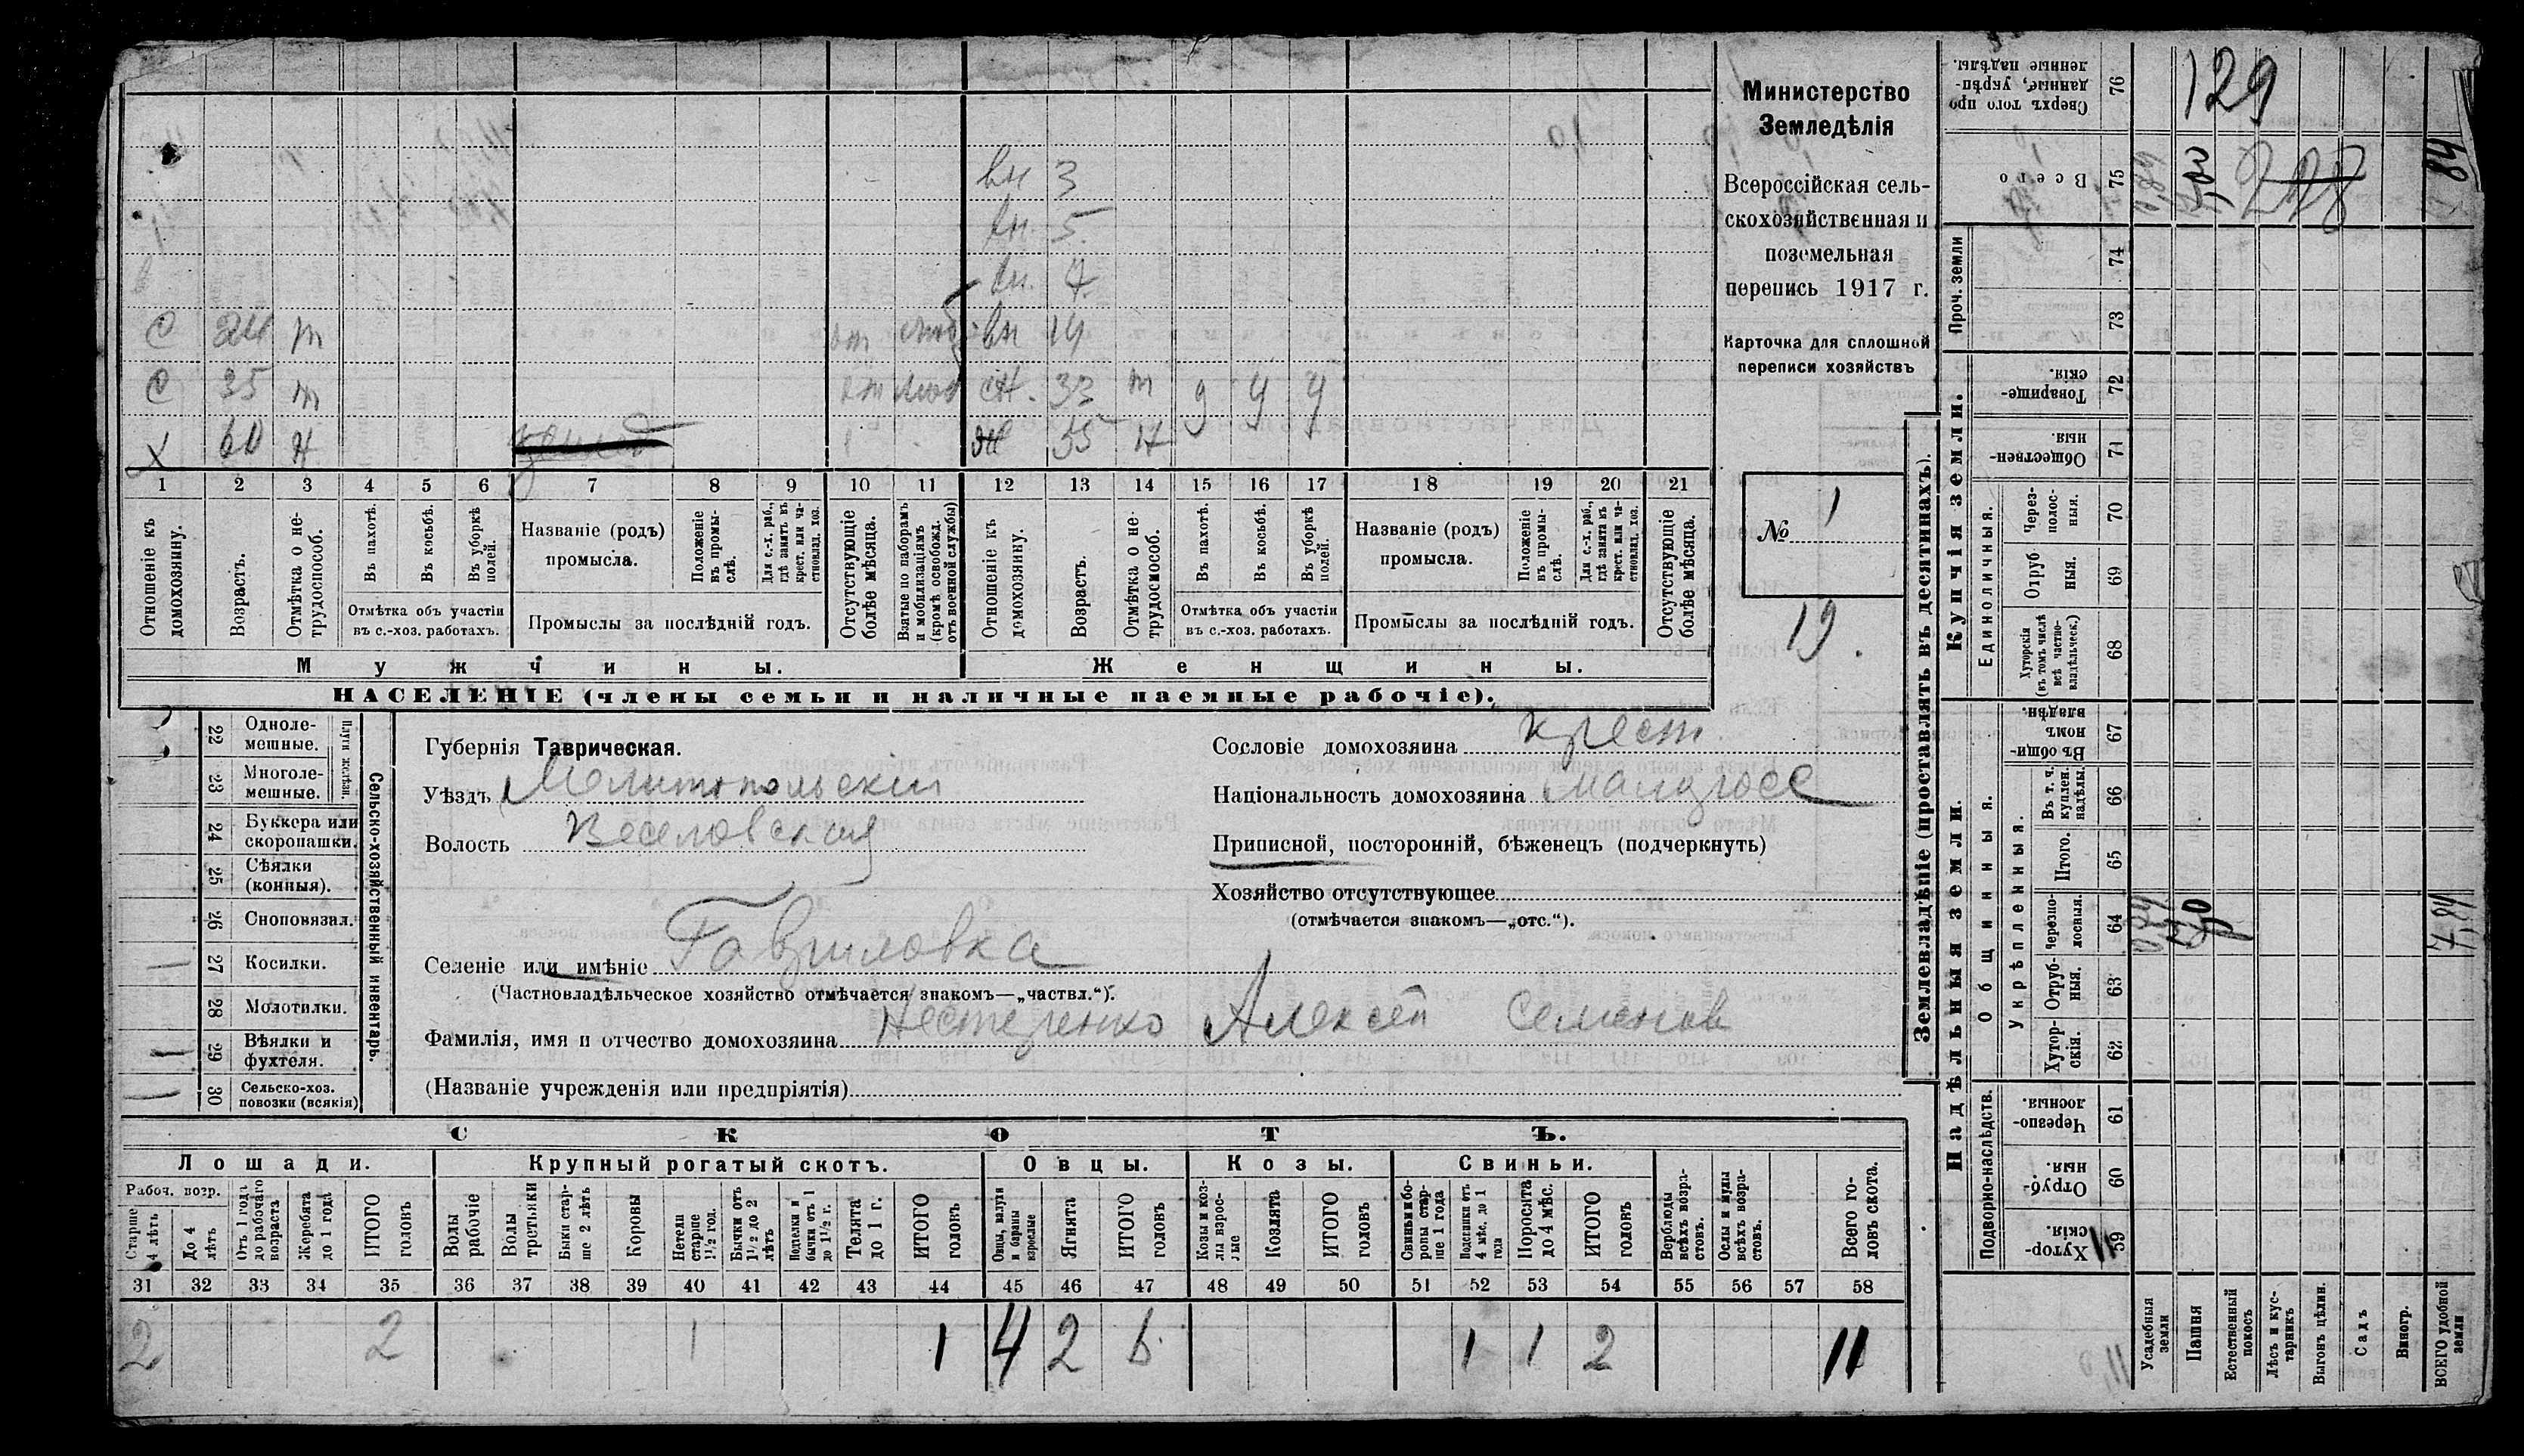 129
Министерство
Земледѣлія
Всероссійская сель-
скохозяйственная и
поземельная
перепись 1917 г.
Карточка для сплошной
переписи хозяйствъ
№ 1
19.
вн 3
вн. 5
вн. 7
С 24 т вн 14
С 35 т сн. 33 т
Х 60 н ж 55 н
1 2 3 4 5 6 7 8 9 10 11 12 13 14 15 16 17 18 19 20 21
Отношеніе къ домохозяину.
Возрастъ.
Отмѣтка о не-трудоспособ.
Въ пахотѣ.
Въ косьбѣ.
Въ уборкѣ полей.
Отмѣтка объ участіи
въ с.-хоз. работахъ.
Названіе (родъ)
промысла.
Положеніе въ промы-слѣ.
Для с.-х. раб., гдѣ занятъ въ крест. или ча-стновлад. хоз.
Промыслы за послѣдній годъ.
Отсутствующіе болѣе мѣсяца.
Взятые по наборамъ и мобилизаціямъ (кромѣ освобожд. отъ военной службы)
Отношеніе къ домохозяину.
Возрастъ.
Отмѣтка о не-трудоспособ.
Въ пахотѣ.
Въ косьбѣ.
Въ уборкѣ полей.
Отмѣтка объ участіи
въ с.-хоз. работахъ.
Названіе (родъ)
промысла.
Положеніе въ промы-слѣ.
Для с.-х. раб., гдѣ занята въ крест. или ча-стновлад. хоз.
Промыслы за послѣдній годъ.
Отсутствующіе болѣе мѣсяца.
Мужчины. Женщины.
НАСЕЛЕНІЕ (члены семьи и наличные наемные рабочіе).
Сельско-хозяйственный инвентарь.
Плуги желѣзн.
22 Одноле-
мешные.
23 Многоле-
мешные.
24 Буккера или
скоропашки.
25 Сѣялки
(конныя).
26 Сноповязал.
27 Косилки.
28 Молотилки.
29 Вѣялки и
фухтеля.
30 Сельско-хоз.
повозки (всякія)
Губернія Таврическая.
Уѣздъ Мелитопольскій
Волость Веселовская
Селеніе или имѣніе Гавриловка
(Частновладѣльческое хозяйство отмѣчается знакомъ—„частвл.“).
Фамилія, имя и отчество домохозяина Нестеренко Алексей Семенов
(Названіе учрежденія или предпріятія)
Сословіе домохозяина крест.
Національность домохозяина малорос
Приписной, посторонній, бѣженецъ (подчеркнуть)
Хозяйство отсутствующее
(отмѣчается знакомъ—„отс.“).
СКОТЪ.
Лошади. Крупный рогатый скотъ. Овцы. Козы. Свиньи.
Рабоч. возр.
Старше 4 лѣтъ
До 4 лѣтъ
Отъ 1 года до рабочаго возраста
Жеребята до 1 года
ИТОГО головъ
Волы рабочіе
Волы третьяки
Быки стар-ше 2 лѣтъ
Коровы
Нетели старше 1½ год.
Бычки отъ 1½ до 2 лѣтъ
Подтелки и бычки отъ 1 до 1½ г.
Телята до 1 г.
ИТОГО головъ
Овцы, валухи и бараны взрослые
Ягнята
ИТОГО головъ
Козы и коз-лы взрос-лые
Козлята
ИТОГО головъ
Свиньи и бо-ровы стар-ше 1 года
Подсвинки отъ 4 мѣс. до 1 года
Поросята до 4 мѣс.
ИТОГО головъ
Верблюды всѣхъ возра-стовъ.
Ослы и мулы всѣхъ возра-стовъ.
Всего го-ловъ скота.
31 32 33 34 35 36 37 38 39 40 41 42 43 44 45 46 47 48 49 50 51 52 53 54 55 56 57 58
2 2 1 1 4 2 6 1 1 2 11
Землевладѣніе (проставлять въ десятинахъ).
Купчія земли.
Надѣльныя земли.
Сверхъ того про-данные, укрѣп-ленные надѣлы. 76
Всего 75
228
Проч. земли 74 73
Товарище-скія. 72
Обществен-ныя. 71
Единоличныя.
Через-полос-ныя. 70
Отруб-ныя. 69
Хуторскія (въ томъ числѣ всѣ частно-владѣльческ.) 68
Общинныя.
Въ общин-номъ владѣн. 67
Укрѣпленныя.
Въ т. ч. куплен. надѣлы. 66
Итого. 65
Черезпо-лосныя. 64
Отруб-ныя. 63
Хутор-скія. 62
Подворно-наслѣдств.
Черезпо-лосныя. 61
Отруб-ныя. 60
Хутор-скія. 59
Усадебныя земли
Пашня
Естественный покосъ
Лѣсъ и кус-тарникъ
Выгонъ цѣлин.
Садъ
Виногр.
ВСЕГО удобной земли